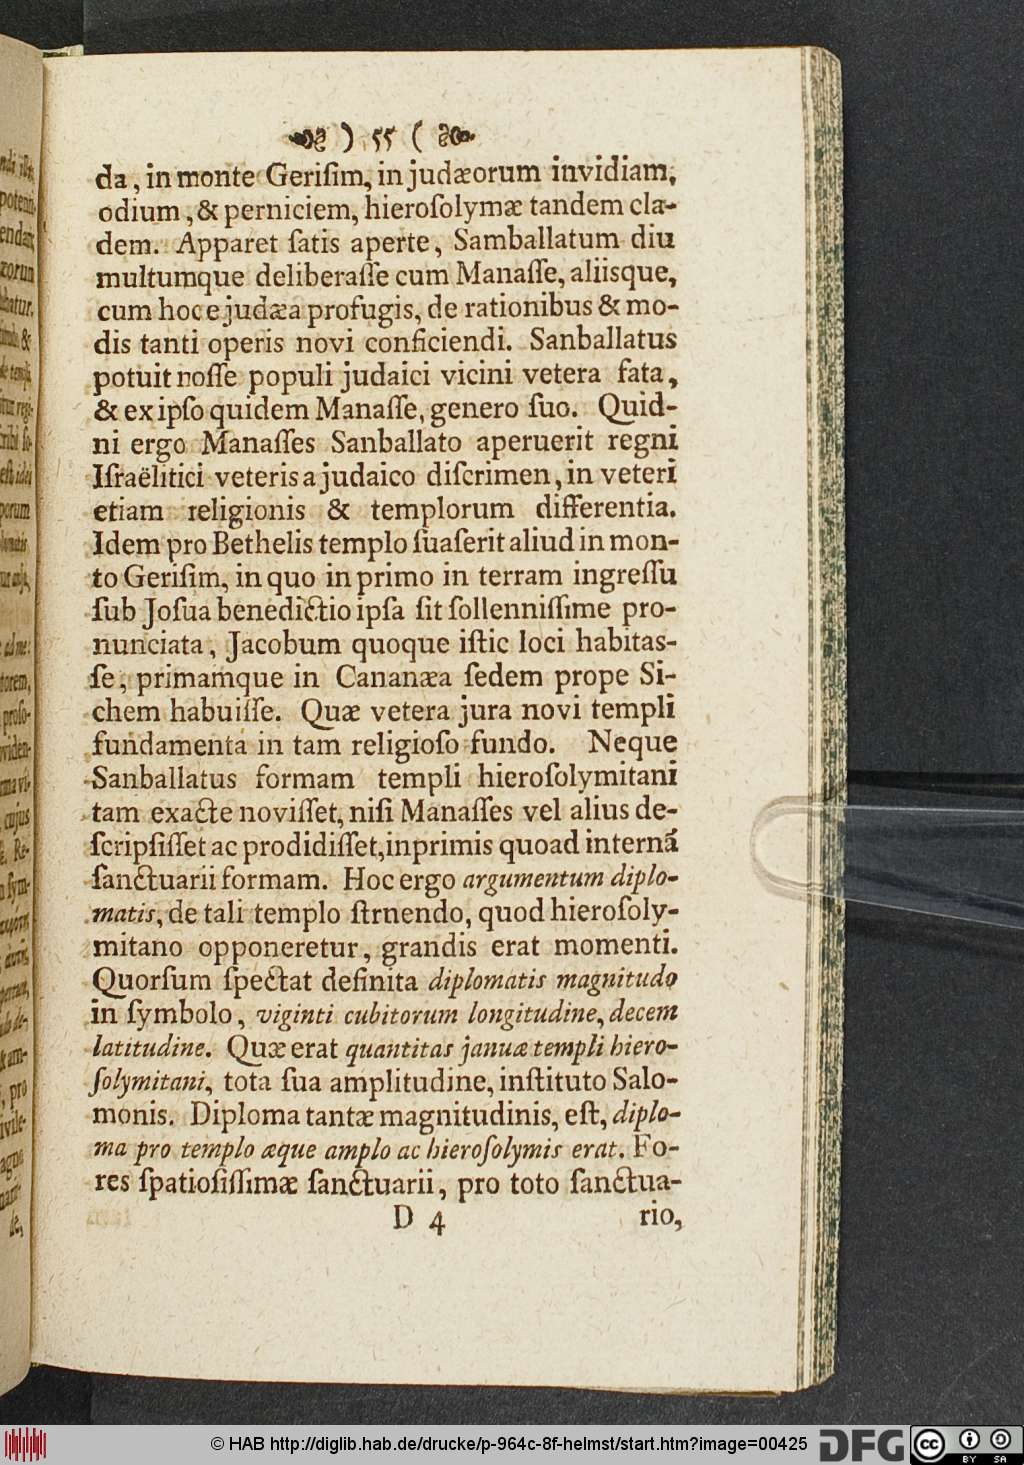 ) 55 (
da, in monte Geriſim, in judæorum invidiam,
odium, & perniciem, hieroſolymæ tandem cla-
dem. Apparet ſatis aperte, Samballatum diu
multumque deliberaſſe cum Manaſſe, aliisque,
cum hoc e judæa profugis, de rationibus & mo-
dis tanti operis novi conficiendi. Sanballatus
potuit noſſe populi judaici vicini vetera fata,
& ex ipſo quidem Manaſſe, genero ſuo. Quid-
ni ergo Manaſſes Sanballato aperuerit regni
Iſraëlitici veteris a judaico diſcrimen, in veteri
etiam religionis & templorum differentia.
Idem pro Bethelis templo ſuaſerit aliud in mon-
to Geriſim, in quo in primo in terram ingreſſu
ſub Joſua benedictio ipſa ſit ſollenniſſime pro-
nunciata, Jacobum quoque iſtic loci habitas-
ſe, primamque in Cananæa ſedem prope Si-
chem habuiſſe. Quæ vetera jura novi templi
fundamenta in tam religioſo fundo. Neque
Sanballatus formam templi hieroſolymitani
tam exacte noviſſet, niſi Manaſſes vel alius de-
ſcripſiſſet ac prodidiſſet, inprimis quoad interná
ſanctuarii formam. Hoc ergo argumentum diplo-
matis, de tali templo ſtrnendo, quod hieroſoly-
mitano opponeretur, grandis erat momenti.
Quorſum ſpectat definita diplomatis magnitudo
in ſymbolo, viginti cubitorum longitudine, decem
latitudine. Quæ erat quantitas januæ templi hiero-
ſolymitani, tota ſua amplitudine, inſtituto Salo-
monis. Diploma tantæ magnitudinis, eſt, diplo-
ma pro templo æque amplo ac hieroſolymis erat. Fo-
res ſpatioſiſſimæ ſanctuarii, pro toto ſanctua-
D 4 rio,
© HAB http://diglib.hab.de/drucke/p-964c-8f-helmst/start.htm?image=00425
DFG
cc BY SA